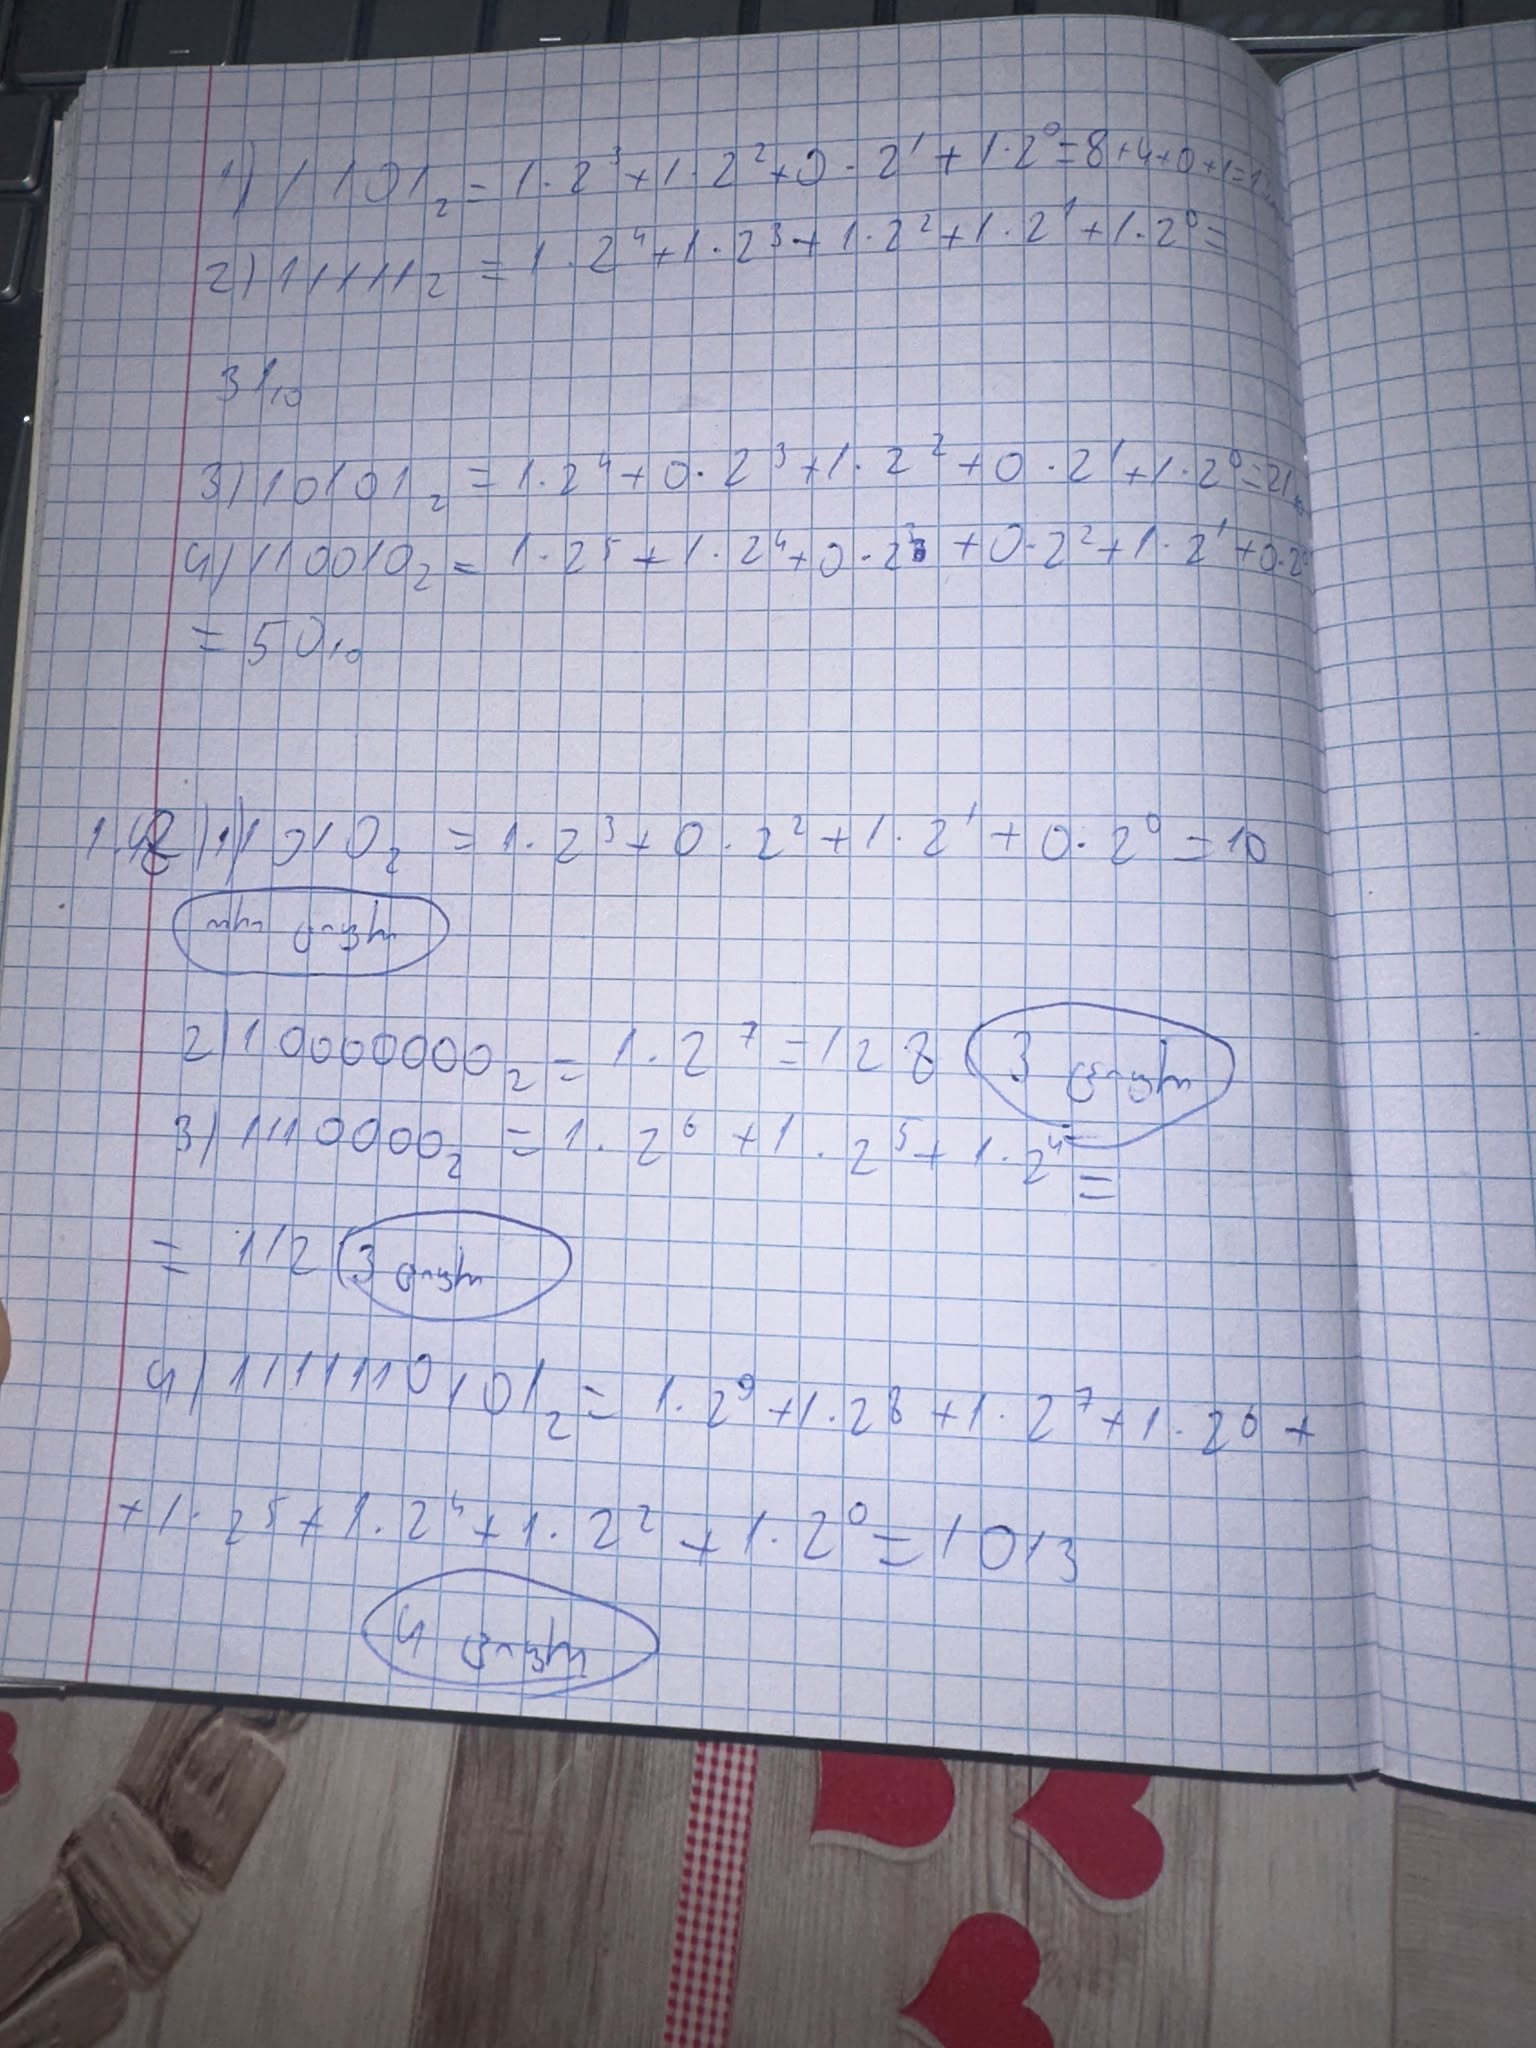 1) 1101₂ = 1·2³+1·2²+0·2¹+1·2⁰=8+4+0+1=
2) 11111₂ = 1·2⁴+1·2³+1·2²+1·2¹+1·2⁰=
31₁₀
3) 10101₂ = 1·2⁴+0·2³+1·2²+0·2¹+1·2⁰=21₁₀
4) 110010₂ = 1·2⁵+1·2⁴+0·2³+0·2²+1·2¹+0·2⁰
= 50₁₀
1) 1010₂ = 1·2³+0·2²+1·2¹+0·2⁰=10
2) 10000000₂ = 1·2⁷=128 3
3) 1110000₂ = 1·2⁶+1·2⁵+1·2⁴=
= 112 3
4) 1111110101₂ = 1·2⁹+1·2⁸+1·2⁷+1·2⁶+
+1·2⁵+1·2⁴+1·2²+1·2⁰=1013
4